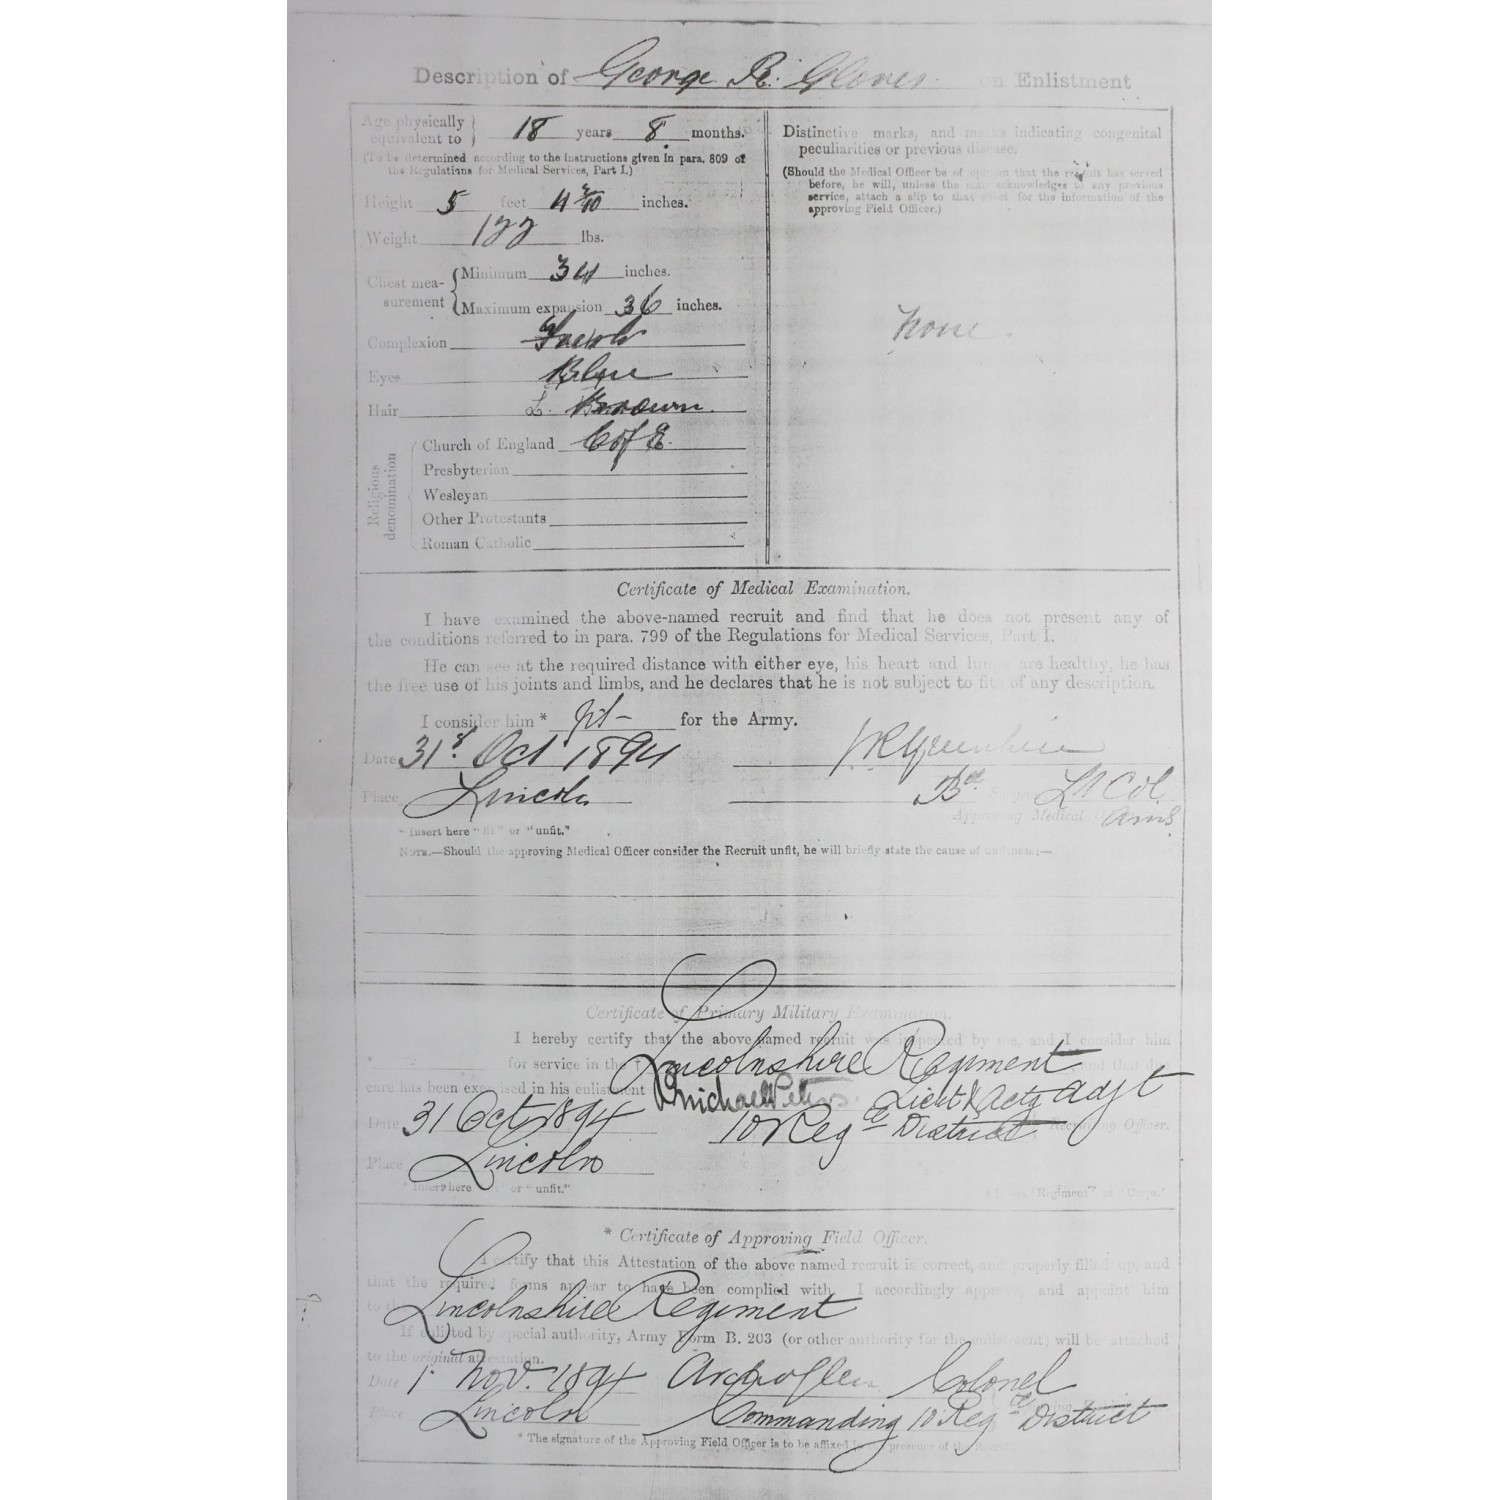 Description of George R. Glover on Enlistment
Age physically equivalent to } 18 years 8 months.
(To be determined according to the instructions given in para. 809 of
the Regulations for Medical Services, Part I.)
Height 5 feet 4 2/10 inches.
Weight 122 lbs.
Chest mea-surement { Minimum 34 inches.
Maximum expansion 36 inches.
Complexion Fresh
Eyes Blue
Hair L. Brown.
Religious denomination
Church of England C of E.
Presbyterian
Wesleyan
Other Protestants
Roman Catholic
Distinctive marks, and marks indicating congenital
peculiarities or previous disease.
(Should the Medical Officer be of opinion that the recruit has served
before, he will, unless the man acknowledges to any previous
service, attach a slip to that effect for the information of the
approving Field Officer.)
None
Certificate of Medical Examination.
I have examined the above-named recruit and find that he does not present any of
the conditions referred to in para. 799 of the Regulations for Medical Services, Part I.
He can see at the required distance with either eye, his heart and lungs are healthy, he has
the free use of his joints and limbs, and he declares that he is not subject to fits of any description.
I consider him * fit for the Army.
Date 31st Oct 1894
Place Lincoln Bde Lt Col
Approving Medical AMS
* Insert here "fit" or "unfit."
NOTE.—Should the approving Medical Officer consider the Recruit unfit, he will briefly state the cause of unfitness:—
Certificate of Primary Military Examination.
I hereby certify that the above named recruit was inspected by me, and I consider him
* for service in the † Lincolnshire Regiment and that due
care has been exercised in his enlistment
Lieut & Actg Adjt
Date 31 Oct 1894 10 Regtl District Recruiting Officer.
Place Lincoln
* Insert here "fit" or "unfit." † Insert "Regiment" or "Corps."
* Certificate of Approving Field Officer.
I certify that this Attestation of the above named recruit is correct, and properly filled up, and
that the required forms appear to have been complied with. I accordingly approve, and appoint him
to the Lincolnshire Regiment
If enlisted by special authority, Army Form B. 203 (or other authority for the enlistment) will be attached
to the original attestation.
Date 1 Nov. 1894 Colonel
Place Lincoln Commanding 10 Regtl District
* The signature of the Approving Field Officer is to be affixed in the presence of the Recruit.